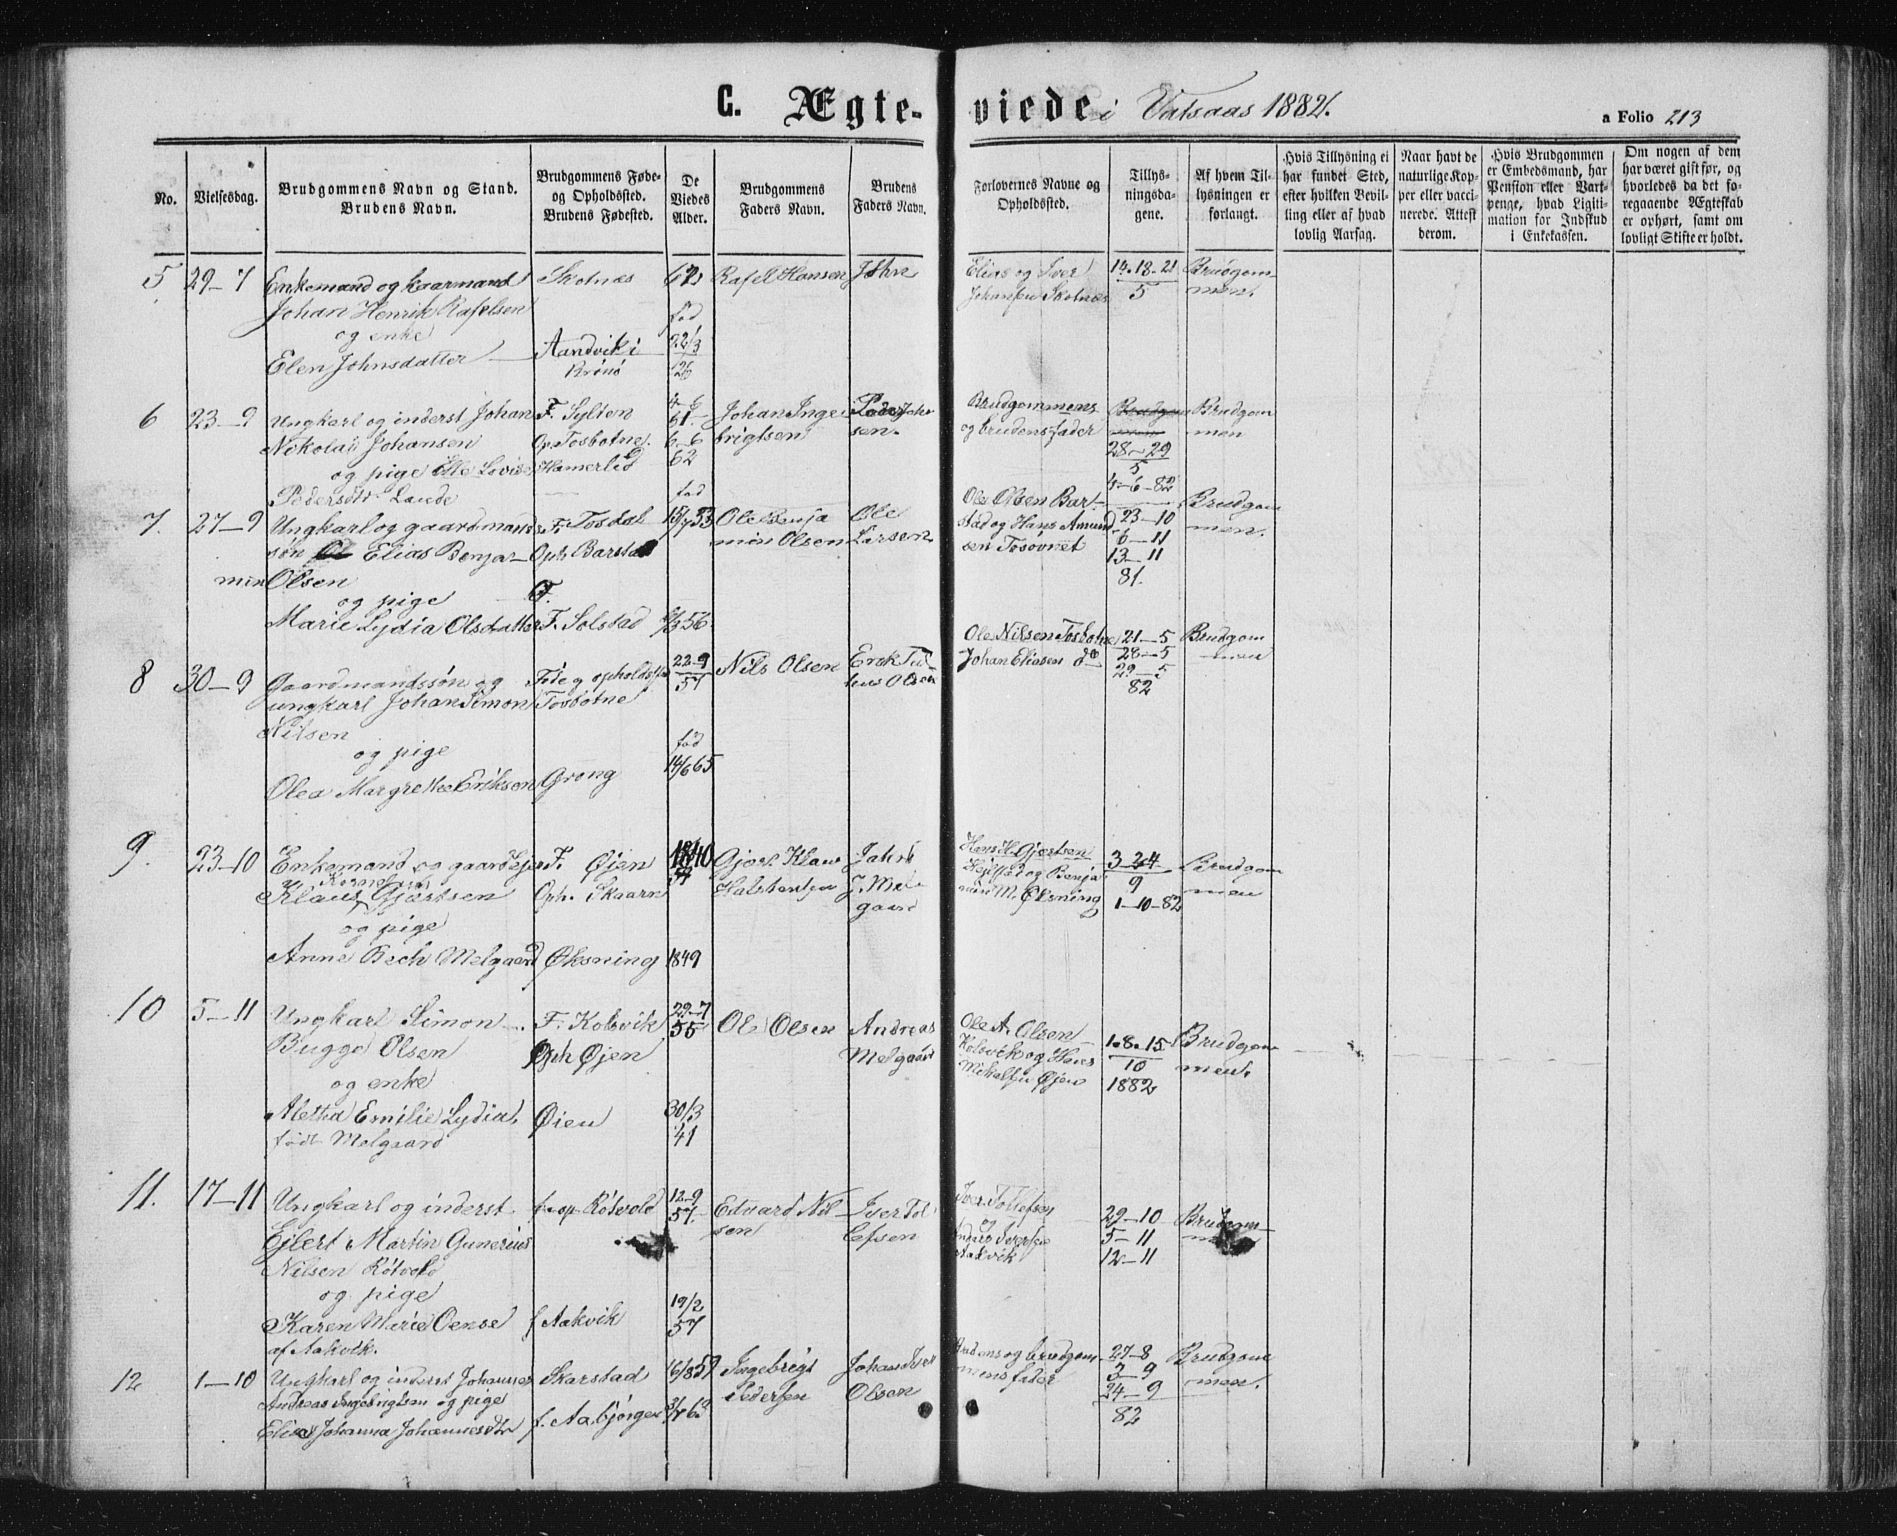 C. Ægte-viede i Vatsaas 1882.
a Folio 213
No.
Vielsesdag.
Brudgommens Navn og Stand.
Brudens Navn.
Brudgommens Føde-
og Opholdssted.
Brudens Fødested.
De
Viedes
Alder.
Brudgommens
Faders Navn.
Brudens
Faders Navn.
Forlovernes Navne og
Opholdssted.
Tillys-
ningsda-
gene.
Af hvem Til-
lysningen er
forlangt.
Hvis Tillysning ei
har fundet Sted,
efter hvilken Bevil-
ling eller af hvad
lovlig Aarsag.
Naar havt de
naturlige Kop-
per eller vacci-
nerede. Attest
derom.
Hvis Brudgommen
er Embedsmand, har
Pension eller Vart-
penge, hvad Ligiti-
mation for Indskud
i Enkekassen.
Om nogen af dem
har været gift før, og
hvorledes da det fo-
regaaende Ægteskab
er ophørt, samt om
lovligt Skifte er holdt.
5
29–7
Enkemand og kaarmand
Johan Henrik Rafelsen
og enke
Elen Johnsdatter
Skotnæs
Aandvik i
Brønø
62
fød
22/3
26
Rafel Hansen
John
Elias og Iver
Johansen Skotnæs
14.18.21
5
Brudgom-
men.
6
23–9
Ungkarl og inderst Johan
Nikolai Johansen
og pige Elle Lovise
Pedersdtr. Lande
F. Sylten
Op. Tosbotne.
Hamerlid
4–6
61.
6–6
62
Johan Inge
brigtsen
Peder Joha
sen.
Brudgommens
og brudens fader
28–29
5
4–6–82
Brudgom
men
7.
27–9
Ungkarl og gaardmands
søn Elias Benja-
min Olsen
og pige
Marie Lydia Olsdatter
F. Tosdal
Oph. Barstad
F.
F. Solstad
fød
15/7 53
56
Ole Benja
min Olsen
Ole
Larsen
Ole Olsen Bar-
stad og Hans Amund
sen Tosovnet
23–10
6–11
13–11
81.
Brudgom
men.
8
30–9
Gaardmandssøn og
ungkarl Johan Simon
Nilsen
og pige
Olea Margrethe Eriksen
Føde og opholdsst
Tosbotne
Grong
22–9
57
fød
14/6 65
Nils Olsen
Erik Tul
lius Olsen
Ole Nilsen Tosbotne
Johan Eliasen do
21–5
28–5
29–5
82
Brudgom
men
9.
23–10
Enkemand og gaardejer
Klaus Gjærtsen
og pige
Anne Bech Melgaard
F. Øjen
Oph. Skaarn
Øksning
18/10
1849
Gjært Klaus
Halstensen
Jahn
J. Mel
gaard
Hans H. Gjertsen
og Benja
min M. Øksning
3–24
9
1–10–82
Brudgom
men
10
5–11
Ungkarl Simon
Bugge Olsen
og enke
Aletha Emilie Lydia,
født Melgaard
F. Kolsvik
Oph Øjen
Øien
29–7
55
30/3
41
Ole Olsen
Andreas
Melgaard
Ole A. Olsen
Kolsvik og Hans
Mikalsen Øjen
1.8.15
10
1882
Brudgom
men.
11.
17–11
Ungkarl og inderst
Ejlert Martin Gunerius
Nilsen Røtvold
og pige
Karen Marie
af Aakvik.
f. op Røtvold
f Aakvik
12–9
57.
19/2
57
Eduard Nil
sen
Iver Tol
lefsen
Iver Tollefsen
og
Iversen
Aakvik
29–10
5–11
12–11
12
1–10
Ungkarl og inderst Johannes
Andreas Ingebrigtsen og pige
Elise Johanna Johannesdtr
Skarstad
f. Aabjørgen
16/8 57
Ingebrigt
Pedersen
Johan Iver
Olsen
Brudens og brudgom
mens fader
27–8
3–9
24–9
82
Brudgom
men.